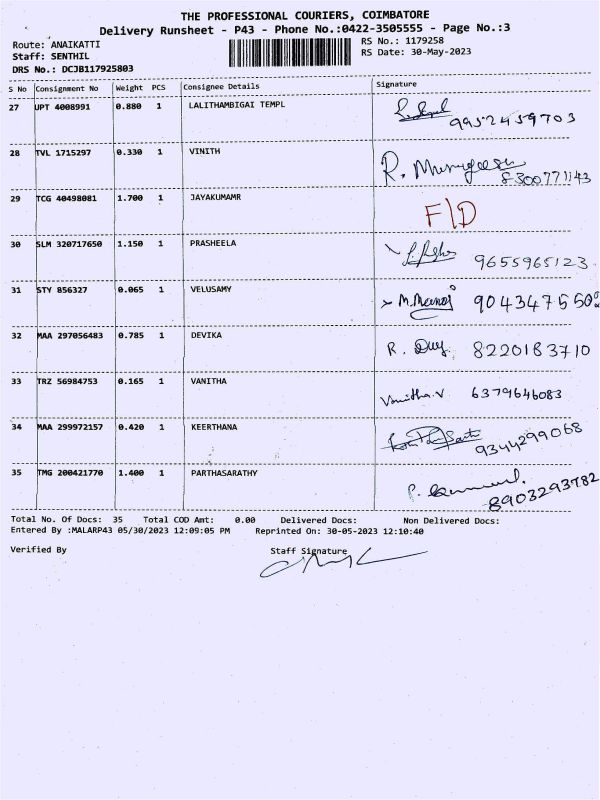 THE PROFESSIONAL COURIERS, COIMBATORE
Delivery Runsheet - P43 - Phone No.:0422-3505555 - Page No.:3
Route: ANAIKATTI RS No.: 1179258
Staff: SENTHIL RS Date: 30-May-2023
DRS No.: DCJB117925803
S No Consignment No Weight PCS Consignee Details Signature
27 UPT 4008991 0.880 1 LALITHAMBIGAI TEMPL 9952459703
28 TVL 1715297 0.330 1 VINITH R. Murugesan 8300771143
29 TCG 40498081 1.700 1 JAYAKUMAMR F\D
30 SLM 320717650 1.150 1 PRASHEELA 9655965123
31 STY 856327 0.065 1 VELUSAMY M.Manoj
32 MAA 297056483 0.785 1 DEVIKA R. 8220183710
33 TRZ 56984753 0.165 1 VANITHA Vanitha.V 6379646083
34 MAA 299972157 0.420 1 KEERTHANA 9344299068
35 TMG 200421770 1.400 1 PARTHASARATHY P. 8903293782
Total No. Of Docs: 35 Total COD Amt: 0.00 Delivered Docs: Non Delivered Docs:
Entered By :MALARP43 05/30/2023 12:09:05 PM Reprinted On: 30-05-2023 12:10:40
Verified By Staff Signature